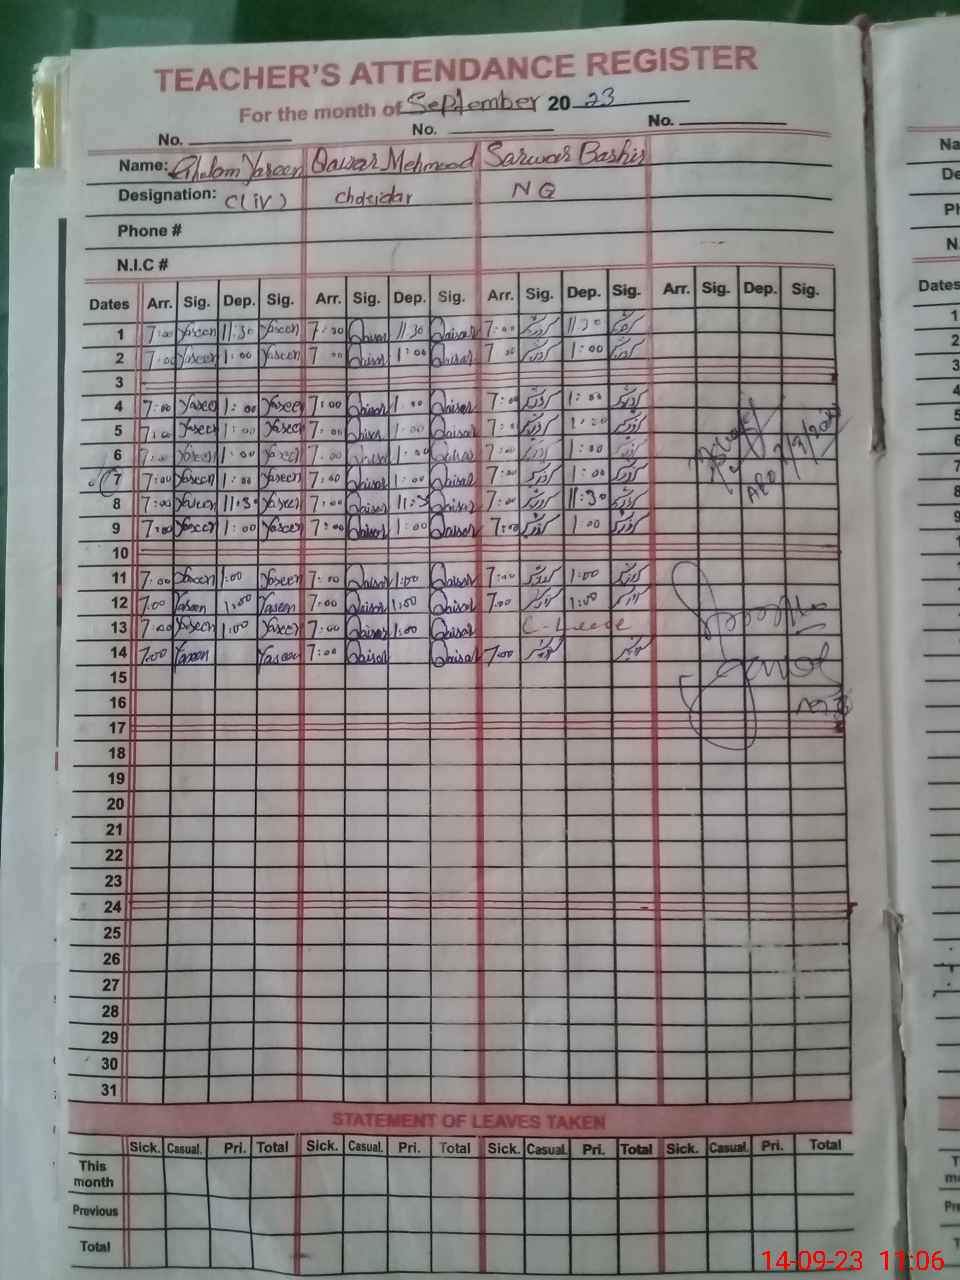 TEACHER'S ATTENDANCE REGISTER
For the month of September 20 23
No. No. No.
Name: Ghulam Yaseen Qaisar Mehmood Sarwar Bashir Na
Designation: C(iv) chokidar NQ De
Phone # Ph
N.I.C # N.
Dates Arr. Sig. Dep. Sig. Arr. Sig. Dep. Sig. Arr. Sig. Dep. Sig. Arr. Sig. Dep. Sig. Dates
1 7:00 Yaseen 11:30 Yaseen 7:00 Qaisar 11:30 Qaisar 7:00 11:30
2 7:00 Yaseen 1:00 Yaseen 7:00 Qaisar 1:00 Qaisar 7:00 1:00
3
4 7:00 Yaseen 1:00 Yaseen 7:00 Qaisar 1:00 Qaisar 7:00 1:00
5 7:00 Yaseen 1:00 Yaseen 7:00 Qaisar 1:00 Qaisar 7:00 1:00
6 7:00 Yaseen 1:00 Yaseen 7:00 Qaisar 1:00 Qaisar 7:00 1:00
7 7:00 Yaseen 1:00 Yaseen 7:00 Qaisar 1:00 Qaisar 7:00 1:00
8 7:00 Yaseen 11:30 Yaseen 7:00 Qaisar 11:3 Qaisar 7:00 11:30
9 7:00 Yaseen 1:00 Yaseen 7:00 Qaisar 1:00 Qaisar 7:00 1:00
10
11 7:00 Yaseen 1:00 Yaseen 7:00 Qaisar 1:00 Qaisar 7:00 1:00
12 7:00 Yaseen 1:00 Yaseen 7:00 Qaisar 1:00 Qaisar 7:00 1:00
13 7:00 Yaseen 1:00 Yaseen 7:00 Qaisar 1:00 Qaisar C-Leave
14 7:00 Yaseen Yaseen 7:00 Qaisar Qaisar 7:00
15
16
17
18
19
20
21
22
23
24
25
26
27
28
29
30
31
STATEMENT OF LEAVES TAKEN
Sick. Casual. Pri. Total Sick. Casual. Pri. Total Sick. Casual. Pri. Total Sick. Casual. Pri. Total
This month
Previous
Total
14-09-23 11:06